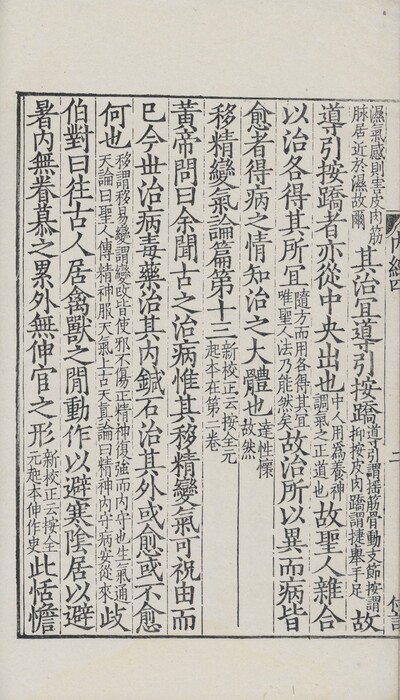 濕氣感則害皮肉筋脉居近於濕故爾其治宜導引按蹻導引謂揺筋骨動支節按謂抑按皮肉蹻謂捷舉手足故
導引按蹻者亦從中央出也中人用爲養神調氣之正道也故聖人雜合
以治各得其所宜隨方而用各得其宜唯聖人法乃能然矣故治所以異而病皆
愈者得病之情知治之大體也達性懷故然
移精變氣論篇第十三新校正云按全元起本在第二卷
黃帝問曰余聞古之治病惟其移精變氣可祝由而
已今世治病毒藥治其内鍼石治其外或愈或不愈
何也移謂移易變謂變改皆使邪不傷正精神復強而内守也生氣通天論曰聖人傳精神服天氣上古天真論曰精神内守病安從來歧
伯對曰往古人居禽獸之閒動作以避寒陰居以避
暑内無眷慕之累外無伸官之形新校正云按全元起本伸作臾此恬憺